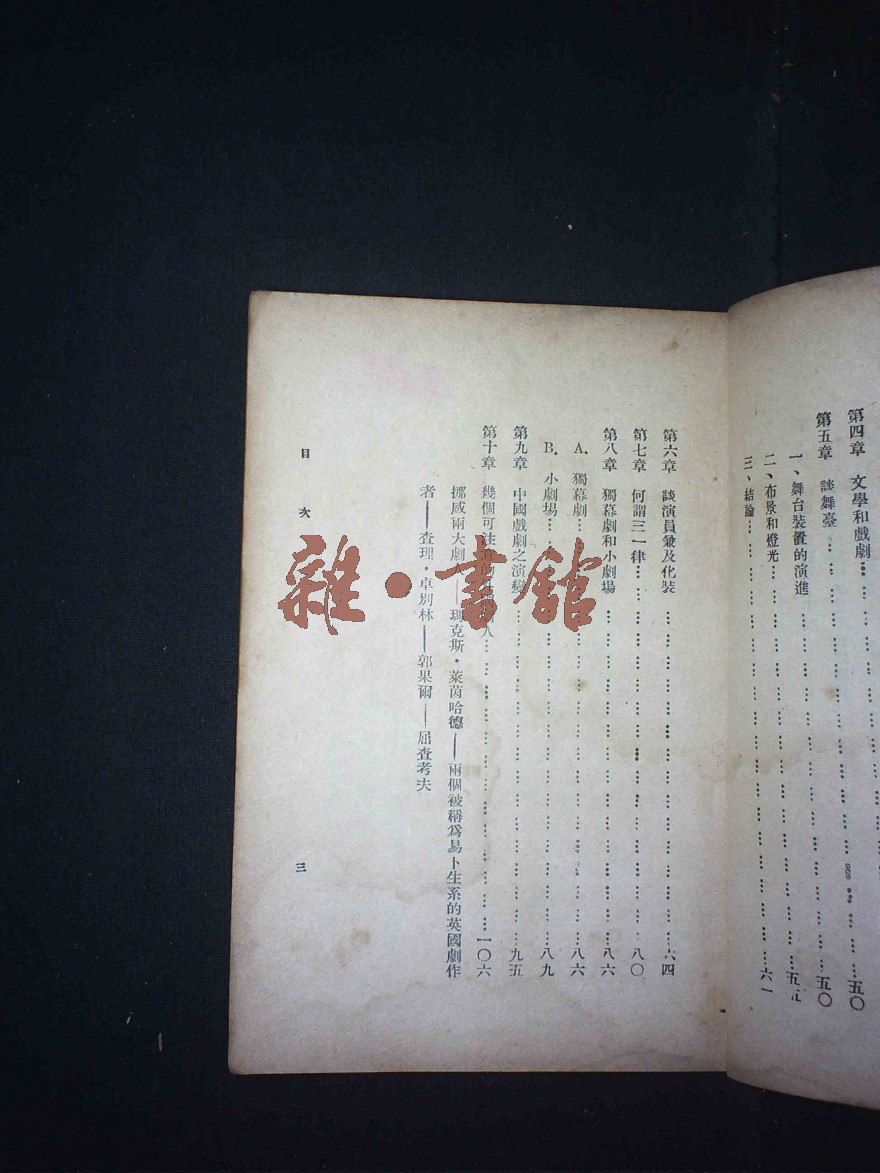 第四章 文學和戲劇……五〇
第五章 談舞臺……五〇
一、舞台裝置的演進……五
二、布景和燈光……六一
三、結論……
第六章 談演員兼及化裝……六四
第七章 何謂三一律……八〇
第八章 獨幕劇和小劇場……八六
A. 獨幕劇……八六
B. 小劇場……八九
第九章 中國戲劇之演變……九五
第十章 幾個可注 人……一〇六
挪威兩大劇 ——瑪克斯·萊茵哈德——兩個被稱爲易卜生系的英國劇作
者——查理·卓別林——郭果爾——屈查考夫
目次
三
雜·書館